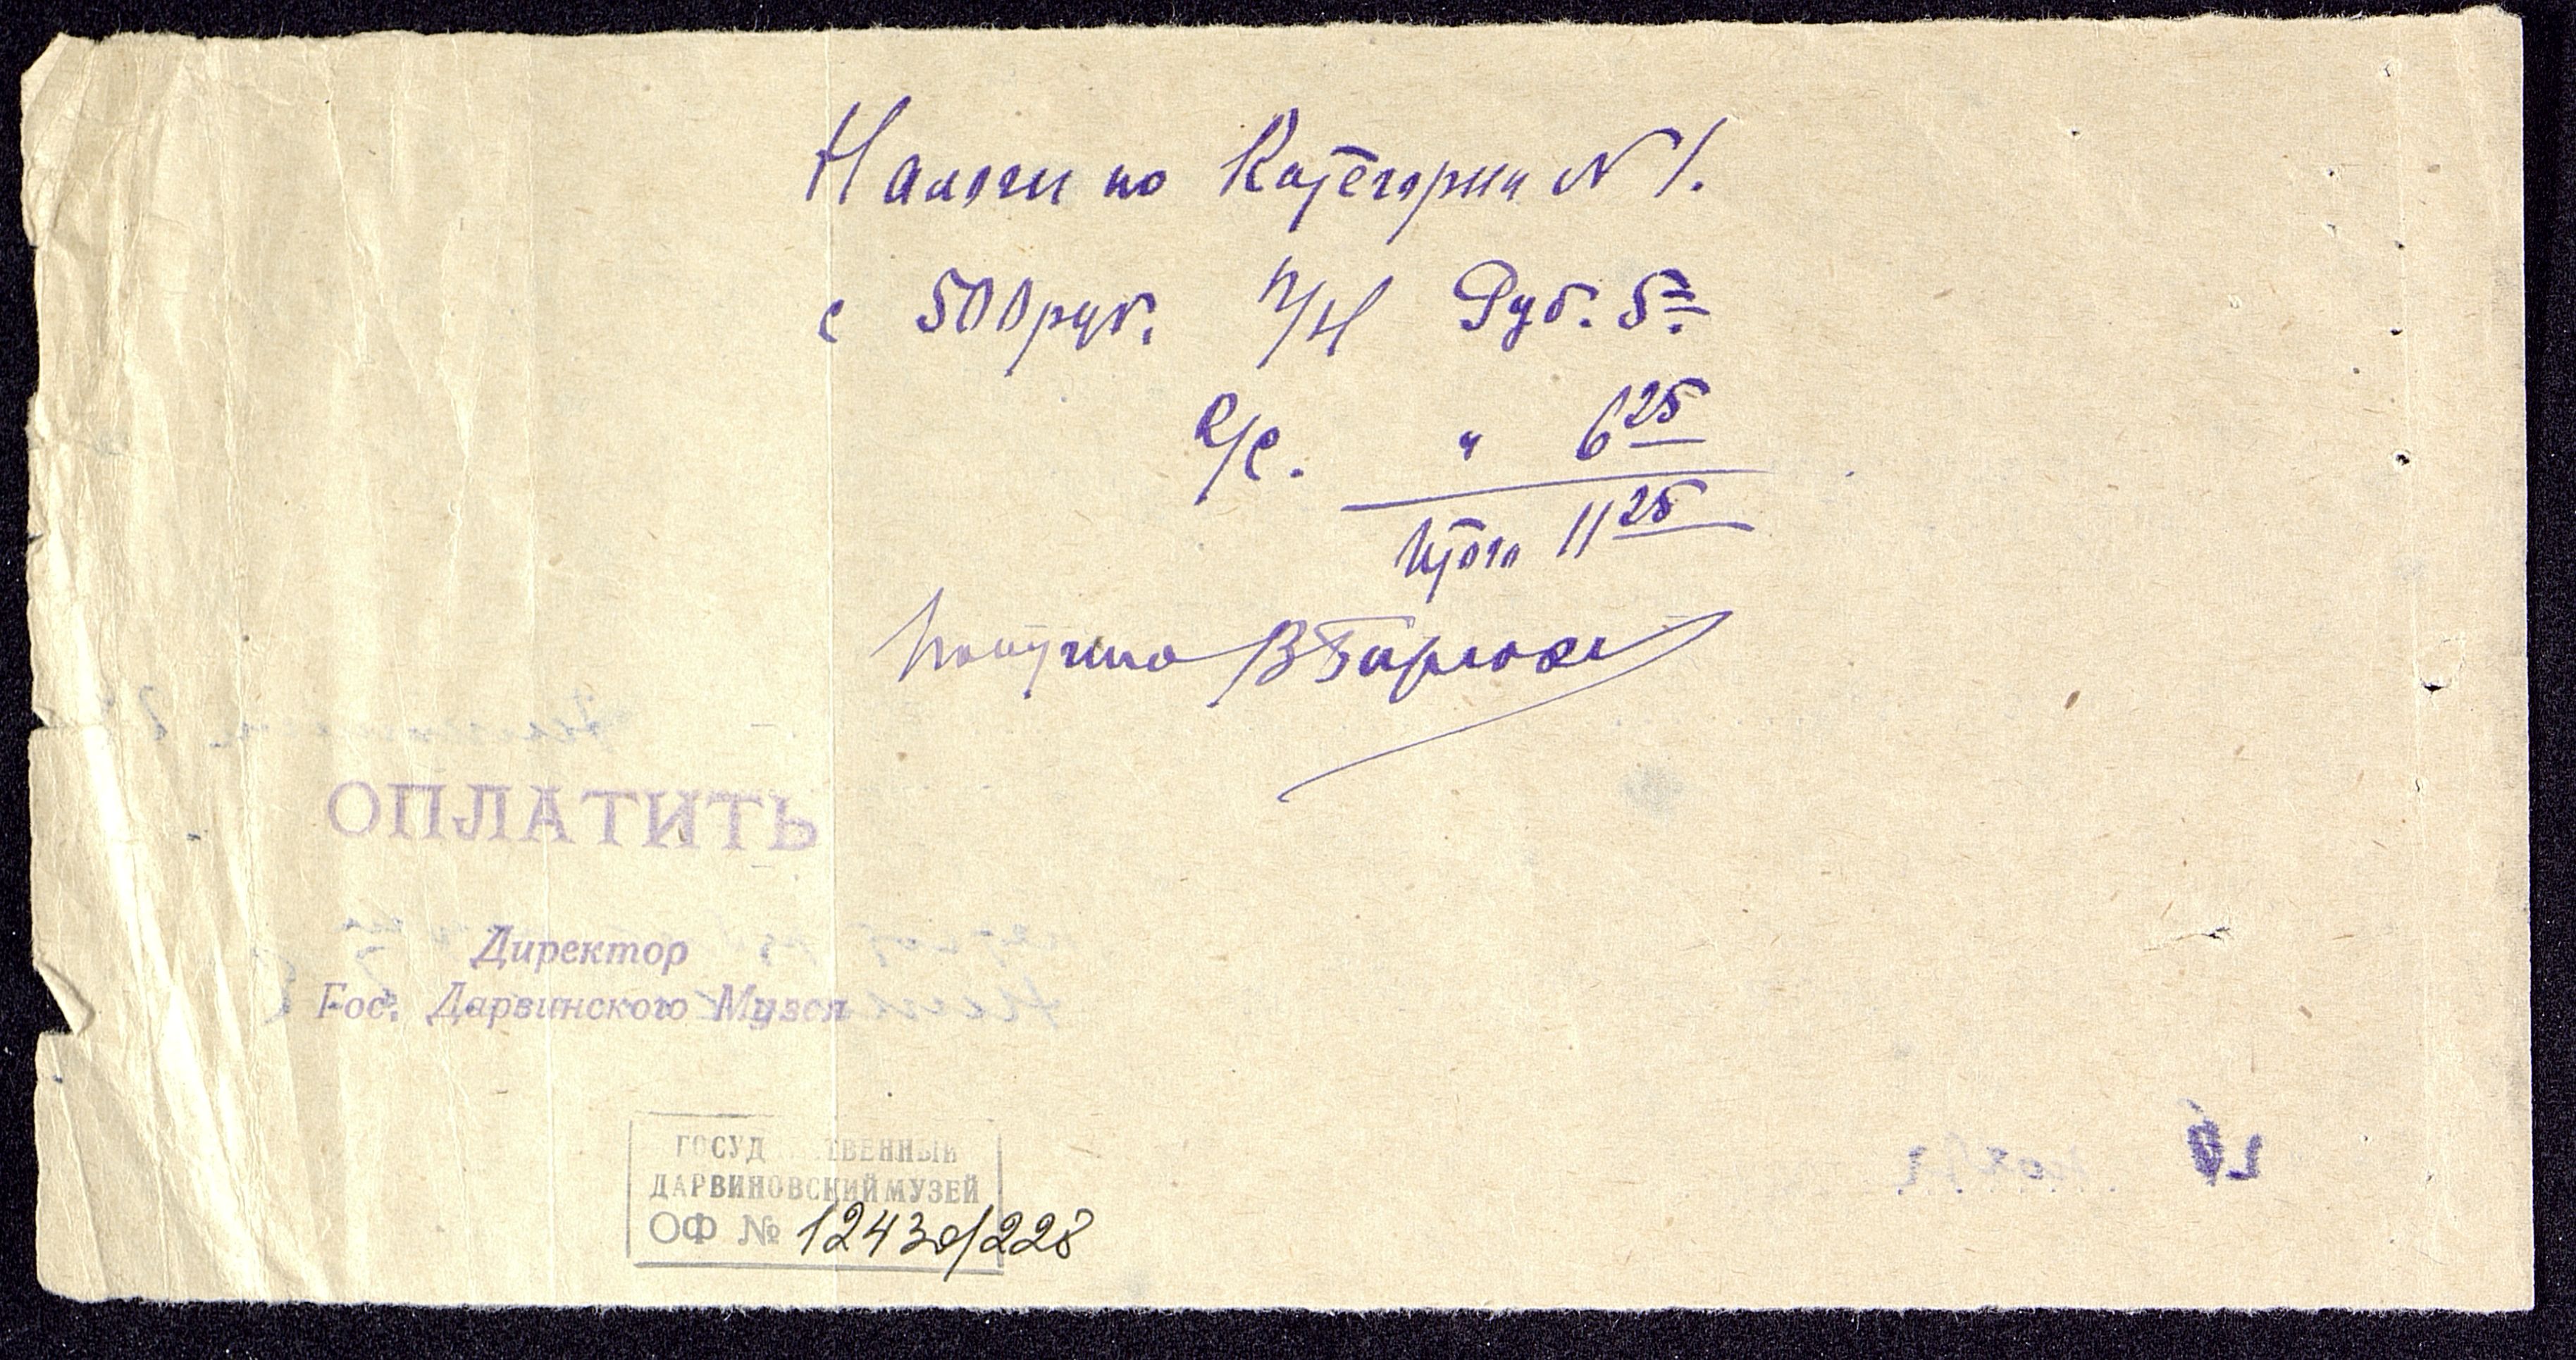 Налоги по Категории № 1.
с 500 руб. п/н Руб. 5=
с/с. " 6 25
Итого 11 25
Получила
ОПЛАТИТЬ
Директор
Гос. Дарвинского Музея
ГОСУД ТВЕННЫЙ
ДАРВИНОВСКИЙ МУЗЕЙ
ОФ № 12430/228